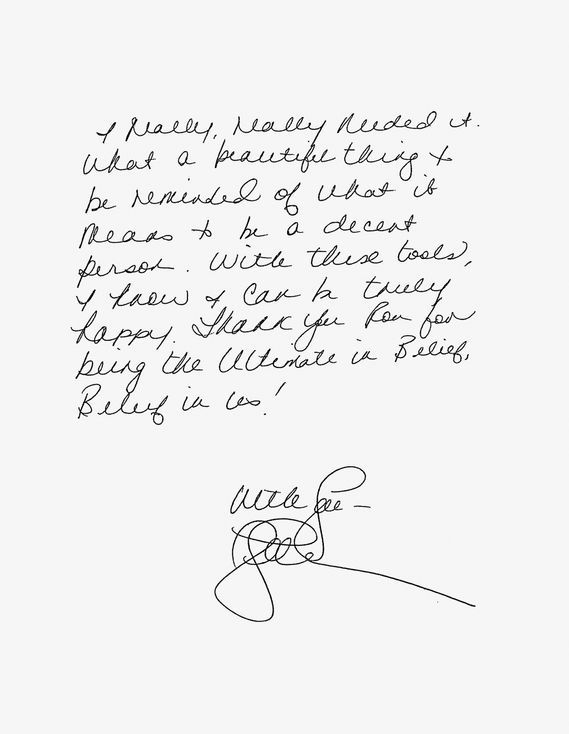 I Really, Really Needed it.
What a beautiful thing to
be reminded of what it
means to be a decent
person. With these tools,
I know I can be truly
happy. Thank you Ron for
being the Ultimate in Belief,
Belief in us!
With